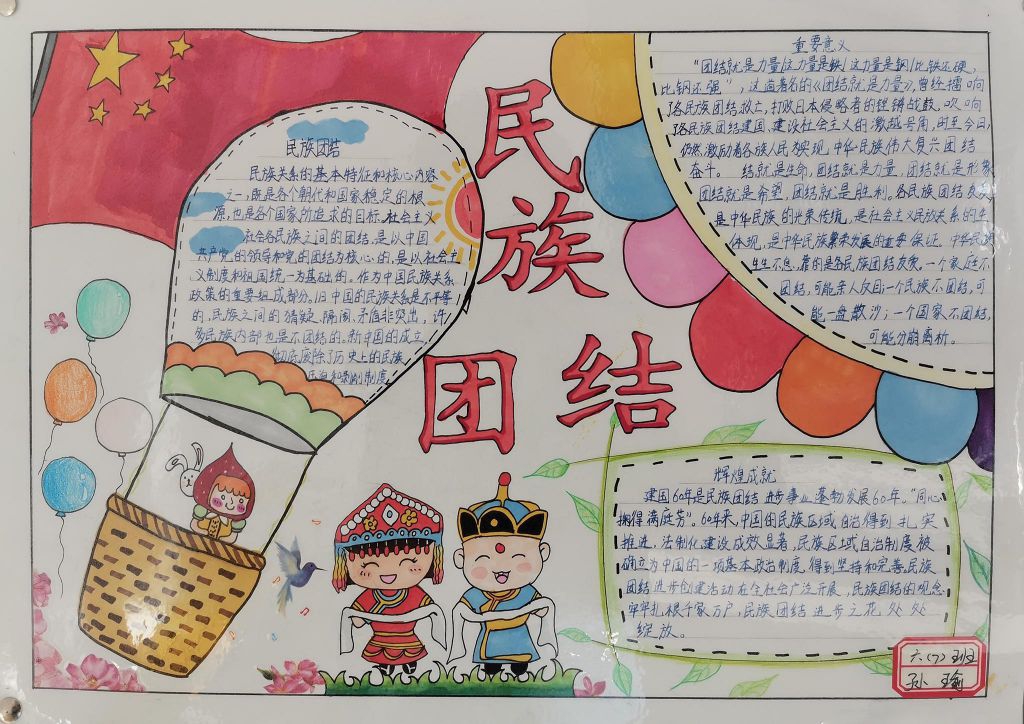 民族团结
民族团结
民族关系的基本特征和核心内容
之一,既是各个朝代和国家稳定的根
源,也是各个国家所追求的目标.社会主义
社会各民族之间的团结,是以中国
共产党的领导和党的团结为核心的,是以社会主
义制度和祖国统一为基础的。作为中国民族关系
政策的重要组成部分,旧中国的民族关系是不平等
的,民族之间的猜疑、隔阂、矛盾非突出,许
多民族内部也是不团结的。新中国的成立
彻底废除了历史上的民族
压迫和剥削制度
重要意义
“团结就是力量,这力量是铁,这力量是钢,比铁还硬,
比钢还强”,这首著名的《团结就是力量》,曾经擂响
了各民族团结救亡,打败日本侵略者的铿锵战鼓.吹响
了各民族团结建国、建设社会主义的激越号角,时至今日,
仍然激励着各族人民为实现中华民族伟大复兴团结
奋斗。 结就是生命,团结就是力量,团结就是形象
团结就是希望,团结就是胜利。各民族团结友
是中华民族的光荣传统,是社会主义民族关系的
体现,是中华民族繁荣发展的重要保证。中华民族
生生不息,靠的是各民族团结友爱。一个家庭不
团结,可能亲人反目;一个民族不团结,可
能一盘散沙;一个国家不团结,
可能分崩离析。
辉煌成就
建国60年是民族团结进步事业蓬勃发展60年。“同心
拥得满庭芳”。60年来,中国的民族区域自治得到扎实
推进,法制化建设成效显著,民族区域自治制度被
确立为中国的一项基本政治制度,得到坚持和完善民族
团结进步创建活动在全社会广泛开展,民族团结的观念
牢牢扎根千家万户,民族团结进步之花处处
绽放。
六(7)班
孙瑜